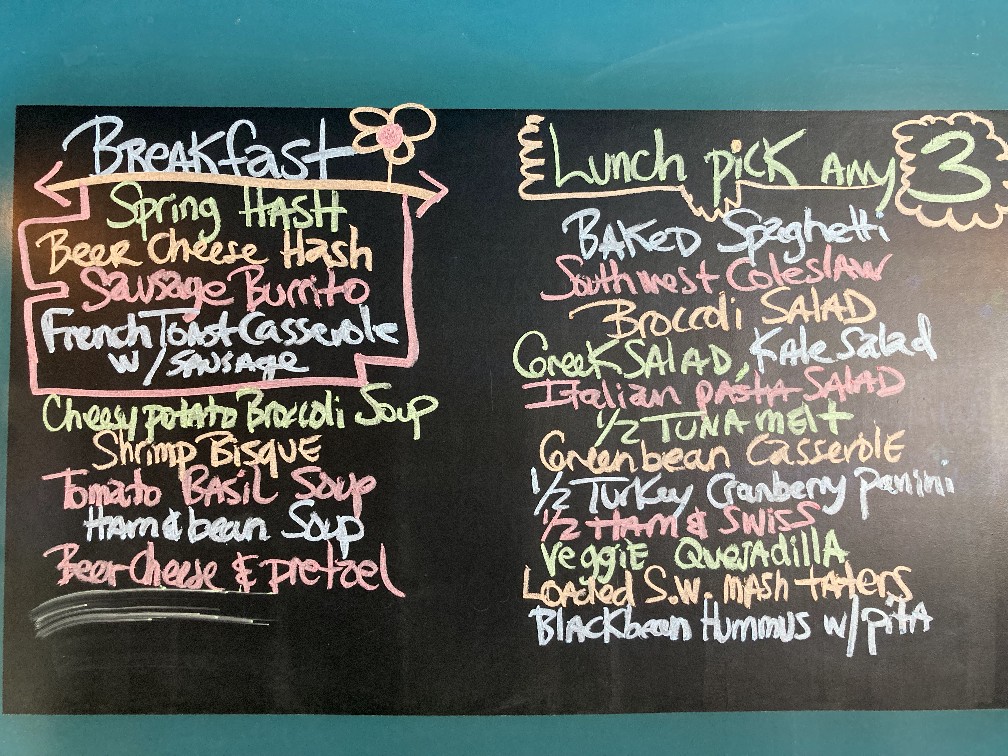 Breakfast
Spring Hash
Beer Cheese Hash
Sausage Burrito
French Toast Casserole
w/ sausage
Cheesy potato Broccoli Soup
Shrimp Bisque
Tomato Basil Soup
Ham & bean Soup
Beer Cheese & pretzel
Lunch pick any 3
Baked Spaghetti
Southwest Coleslaw
Broccoli Salad
Greek Salad, Kale Salad
Italian pasta Salad
1/2 Tuna melt
Greenbean Casserole
1/2 Turkey Cranberry panini
1/2 Ham & Swiss
Veggie Quesadilla
Loaded S.W. mash taters
Blackbean Hummus w/ pita